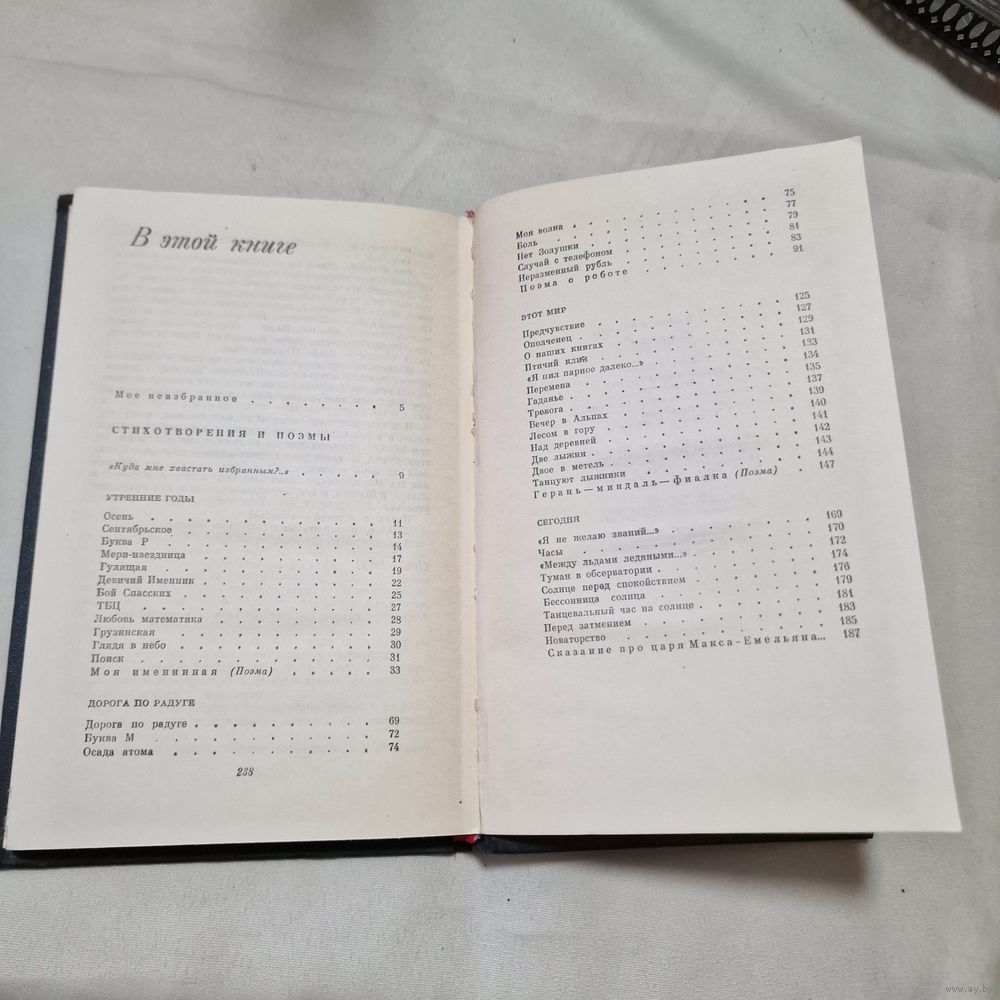 В этой книге
Мое неизбранное . . . . . . . 5
СТИХОТВОРЕНИЯ И ПОЭМЫ
«Куда мне хвастать избранным?..» . . . . . 9
УТРЕННИЕ ГОДЫ
Осень . . . . . . . . . . . 11
Сентябрьское . . . . . . . . . . 13
Буква Р . . . . . . . . . . 14
Мери-наездница . . . . . . . . . 17
Гулящая . . . . . . . . . . 19
Девичий Именник . . . . . . . . . 22
Бой Спасских . . . . . . . . . 25
ТБЦ . . . . . . . . . . . 27
Любовь математика . . . . . . . . 28
Грузинская . . . . . . . . . . 29
Глядя в небо . . . . . . . . . 30
Поиск . . . . . . . . . . . 31
Моя именинная (Поэма) . . . . . 33
ДОРОГА ПО РАДУГЕ
Дорога по радуге . . . . . . . . . 69
Буква М . . . . . . . . . . 72
Осада атома . . . . . . . . . . 74
238
Моя волна . . . . . . . . . . 75
Боль . . . . . . . . . . . 77
Нет Золушки . . . . . . . . . 79
Случай с телефоном . . . . . . . . 81
Неразменный рубль . . . . . . . . 83
Поэма о роботе . . . . . . . 91
ЭТОТ МИР
Предчувствие . . . . . . . . . 125
Ополченец . . . . . . . . . . 127
О наших книгах . . . . . . . . . 129
Птичий клин . . . . . . . . . 131
«Я пил парное далеко...» . . . . . . . 133
Перемена . . . . . . . . . . 134
Гаданье . . . . . . . . . . 135
Тревога . . . . . . . . . . 137
Вечер в Альпах . . . . . . . . . 139
Лесом в гору . . . . . . . . . 140
Над деревней . . . . . . . . . 141
Две лыжни . . . . . . . . . . 142
Двое в метель . . . . . . . . . 143
Танцуют лыжники . . . . . . . . 144
Герань—миндаль—фиалка (Поэма) . 147
СЕГОДНЯ
«Я не желаю званий...» . . . . . . . 169
Часы . . . . . . . . . . . 170
«Между льдами ледяными...» . . . . . . 172
Туман в обсерватории . . . . . . . 174
Солнце перед спокойствием . . . . . . 176
Бессонница солнца . . . . . . . . 179
Танцевальный час на солнце . . . . . . 181
Перед затмением . . . . . . . . 183
Новаторство . . . . . . . . . 185
Сказание про царя Макса-Емельяна... 187
www.ay.by